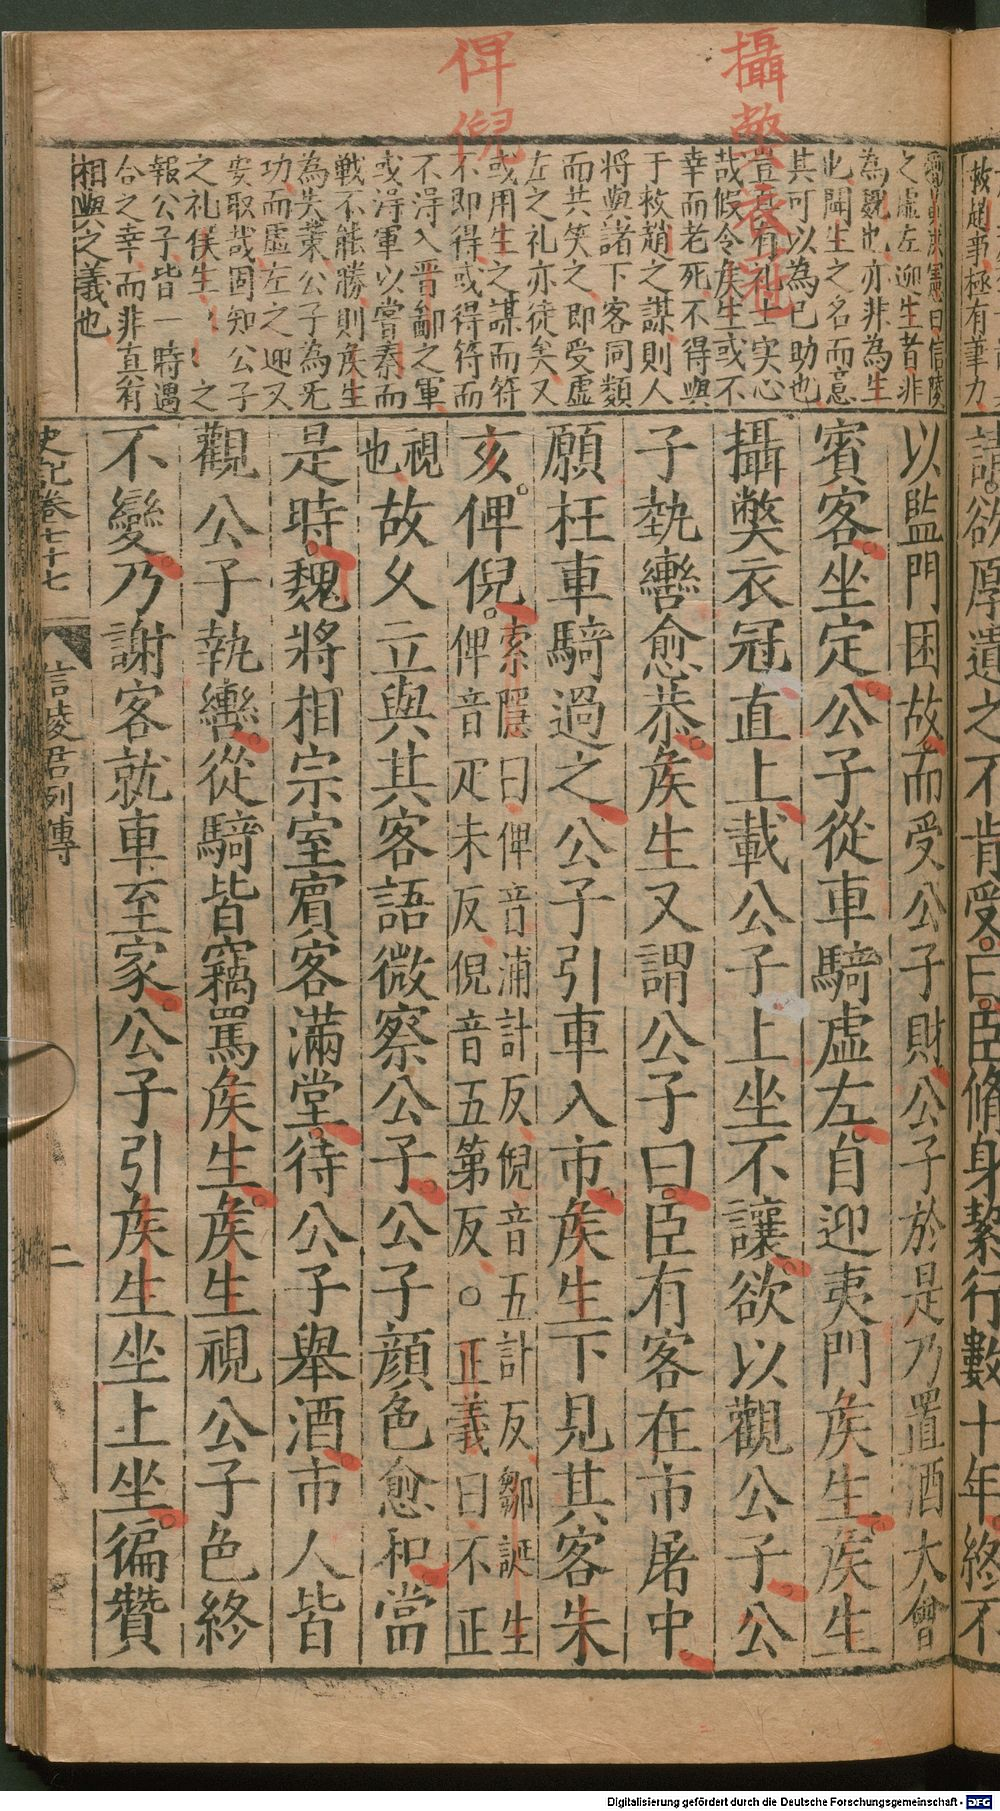 攝弊衣冠
俾倪
救趙事極有筆力
之虛左迎生者非
為魏也亦非為生
此聞生之名而意
其可以為己助也
豈真有礼士实心
哉假令矦生或不
幸而老死不得與
于救趙之謀則人
將與諸下客同類
而共笑之即受虛
左之礼亦徒矣又
或用生之謀而符
不即得或得符而
不得入晋鄙之軍
或得軍以當秦而
戰不能勝則矦生
為失策公子為旡
功而虛左之迎又
安取哉固知公子
之礼侯生之
報公子皆一時遇
合之幸而非直有
相與之義也
請欲厚遺之不肯受曰臣脩身絜行數十年終不
以監門困故而受公子財公子於是乃置酒大會
賓客坐定公子從車騎虛左自迎夷門矦生矦生
攝弊衣冠直上載公子上坐不讓欲以觀公子公
子執轡愈恭矦生又謂公子曰臣有客在市屠中
願枉車騎過之公子引車入市矦生下見其客朱
亥俾倪索隱曰俾音浦計反倪音五計反鄒誕生
俾音疋未反倪音五第反○正義曰不正
視也故久立與其客語微察公子公子顔色愈和當
是時魏將相宗室賓客滿堂待公子舉酒市人皆
觀公子執轡從騎皆竊罵矦生矦生視公子色終
不變乃謝客就車至家公子引矦生坐上坐徧贊
史記卷七十七 信陵君列傳 二
Digitalisierung gefördert durch die Deutsche Forschungsgemeinschaft - DFG